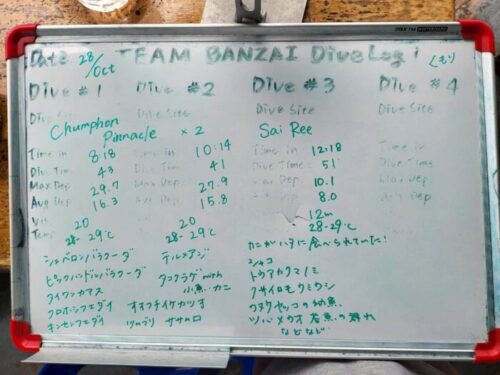 Date 28/Oct TEAM BANZAI Dive Log! くもり
Dive #1 Dive #2 Dive #3 Dive #4
Dive Site Dive Site Dive Site Dive Site
Chumphon Pinnacle ×2 Sai Ree
Time in 8:18 Time in 10:14 Time in 12:18 Time in
Dive Time 43 Dive Time 41 Dive Time 51 Dive Time
Max Dep 29.7 Max Dep 27.9 Max Dep 10.1 Max Dep
Avg Dep 16.3 Avg Dep 15.8 Avg Dep 8.0 Avg Dep
Vis 20 20 12m
Temp 28-29℃ 28-29℃ 28-29℃
シェベロンバラクーダ テルメアジ カニがハタに食べられていた!
ピックハンドルバラクーダ タコクラゲ with 小魚・カニ シャコ
タイワンカマス トウアカクマノミ
クロホシフエダイ オオクチイケカツオ クサイロモウミウシ
キンセンフエダイ ツムブリ ササムロ ワヌケヤッコの幼魚
ツバメウオ 若魚の群れ
などなど